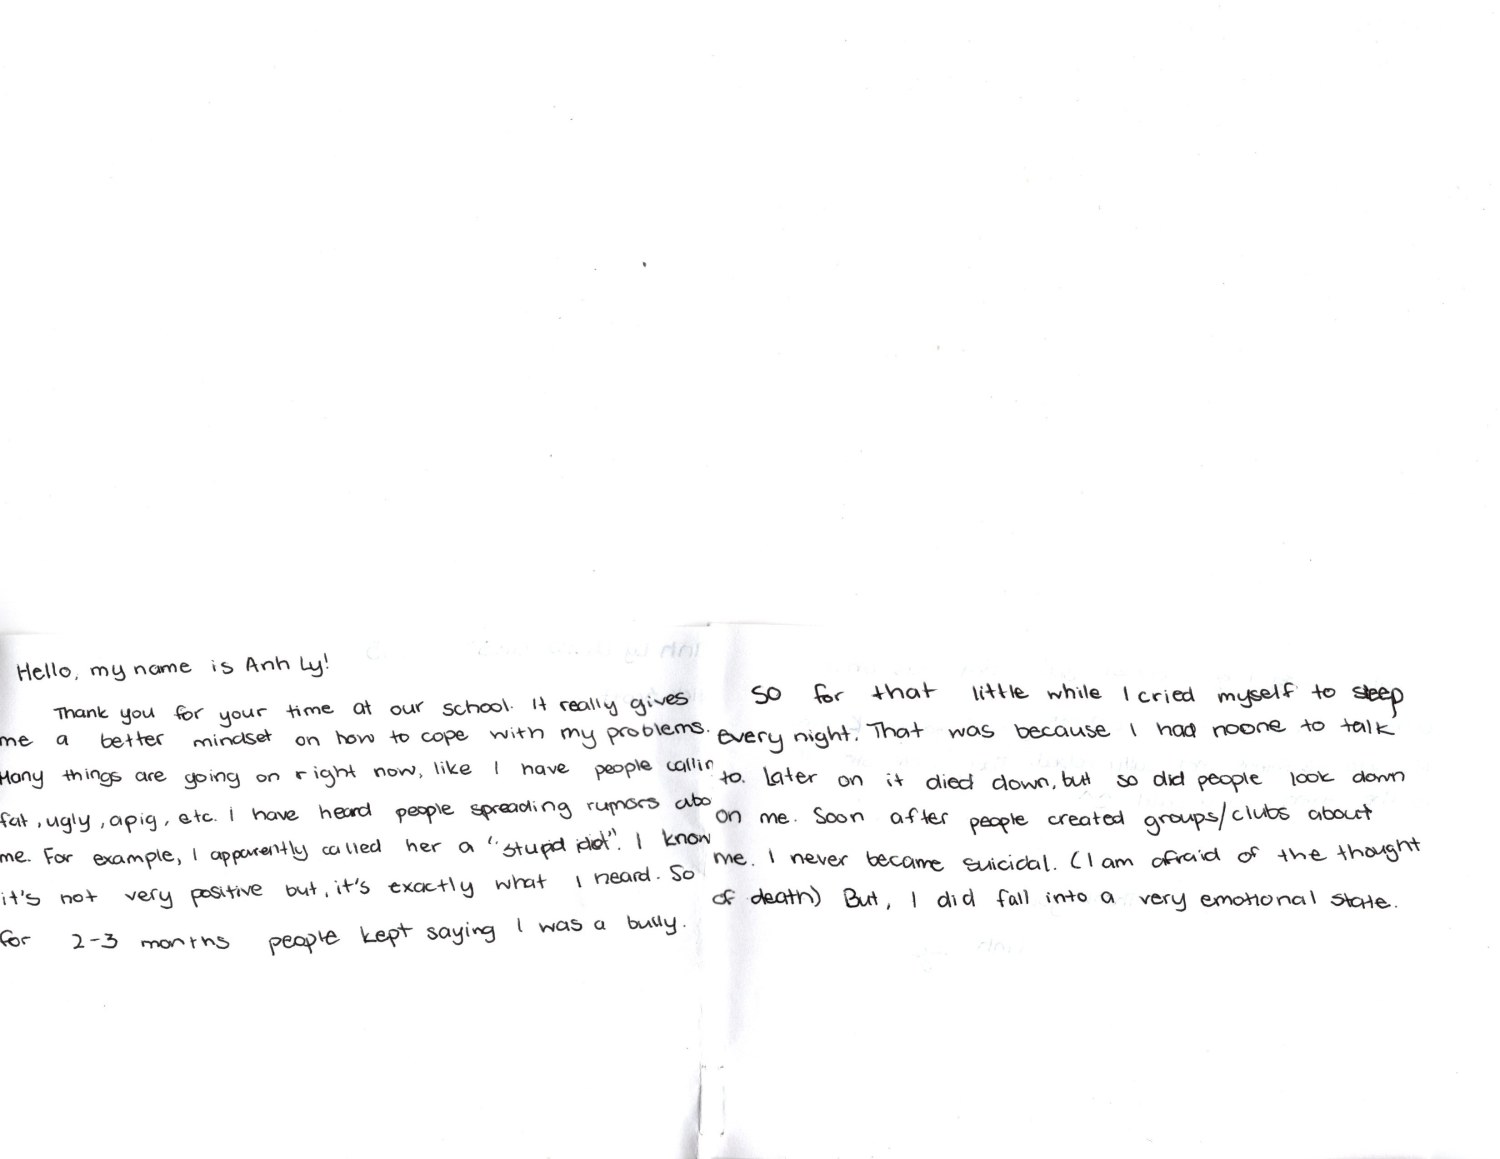 Hello, my name is Anh Ly!
Thank you for your time at our school. It really gives
me a better mindset on how to cope with my problems.
Many things are going on right now, like I have people callin
fat, ugly, a pig, etc. I have heard people spreading rumors abo
me. For example, I apparently called her a "stupid idot". I know
it's not very positive but, it's exactly what I heard. So
for 2-3 months people kept saying I was a bully.
So for that little while I cried myself to sleep
every night. That was because I had noone to talk
to. Later on it died down, but so did people look down
on me. Soon after people created groups/clubs about
me. I never became suicidal. (I am afraid of the thought
of death) But, I did fall into a very emotional state.